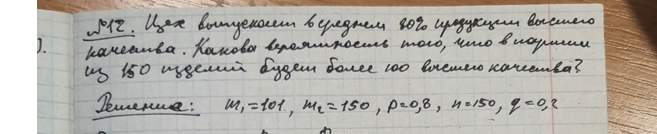 №12. Цех выпускает в среднем 80% продукции высшего
качества. Какова вероятность того, что в партии
из 150 изделий будет более 100 высшего качества?
Решение: m₁=101, m₂=150, p=0,8, n=150, q=0,2